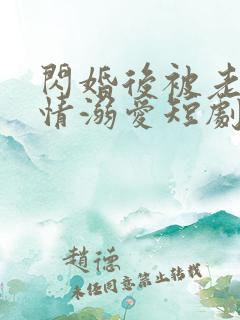 閃婚後被老
情溺愛短劇
趙德
未經同意禁止轉載